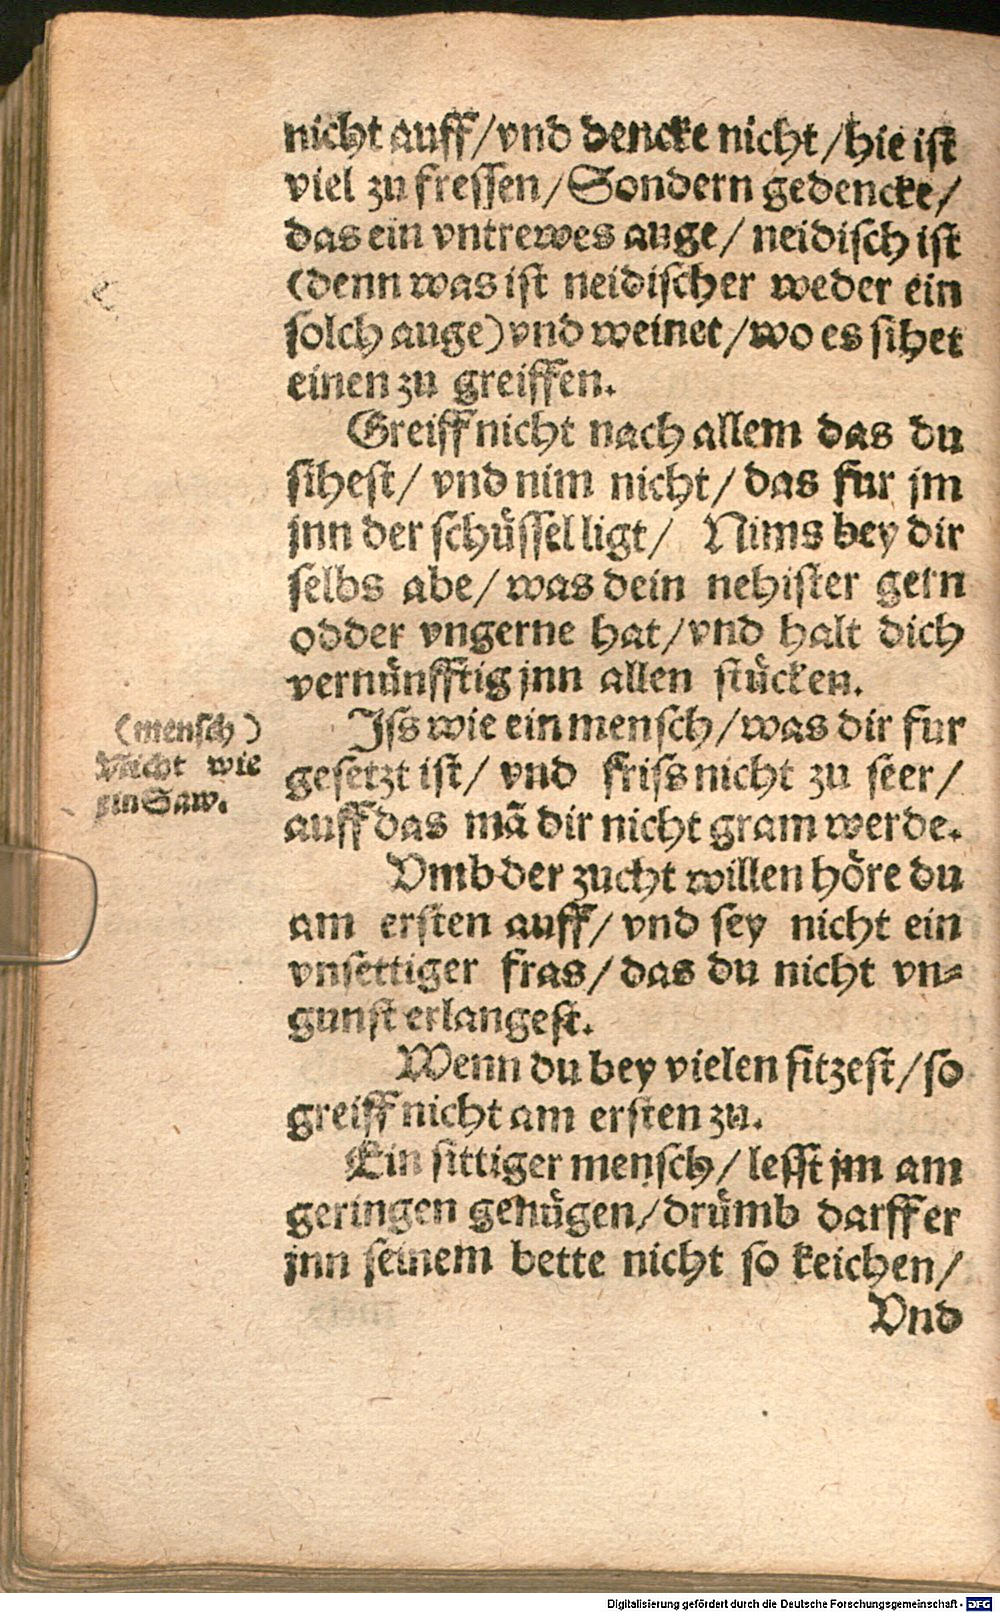 nicht auff/vnd dencke nicht/hie ist
viel zu fressen/Sondern gedencke/
das ein vntrewes auge/ neidisch ist
(denn was ist neidischer weder ein
solch auge)vnd weinet/wo es sihet
einen zu greiffen.
Greiff nicht nach allem das du
sihest/ vnd nim nicht/ das fur jm
jnn der schüssel ligt/ Nims bey dir
selbs abe/ was dein nehister gern
odder vngerne hat/vnd halt dich
vernünfftig jnn allen stücken.
(mensch)
Nicht wie
ein Saw.
Iss wie ein mensch/was dir fur
gesetzt ist/ vnd friss nicht zu seer/
auff das mã dir nicht gram werde.
Vmb der zucht willen höre du
am ersten auff/ vnd sey nicht ein
vnsettiger fras/ das du nicht vn-
gunst erlangest.
Wenn du bey vielen sitzest/so
greiff nicht am ersten zu.
Ein sittiger mensch/ lesst jm am
geringen genügen/drümb darff er
jnn seinem bette nicht so keichen/
Vnd
Digitalisierung gefördert durch die Deutsche Forschungsgemeinschaft - DFG